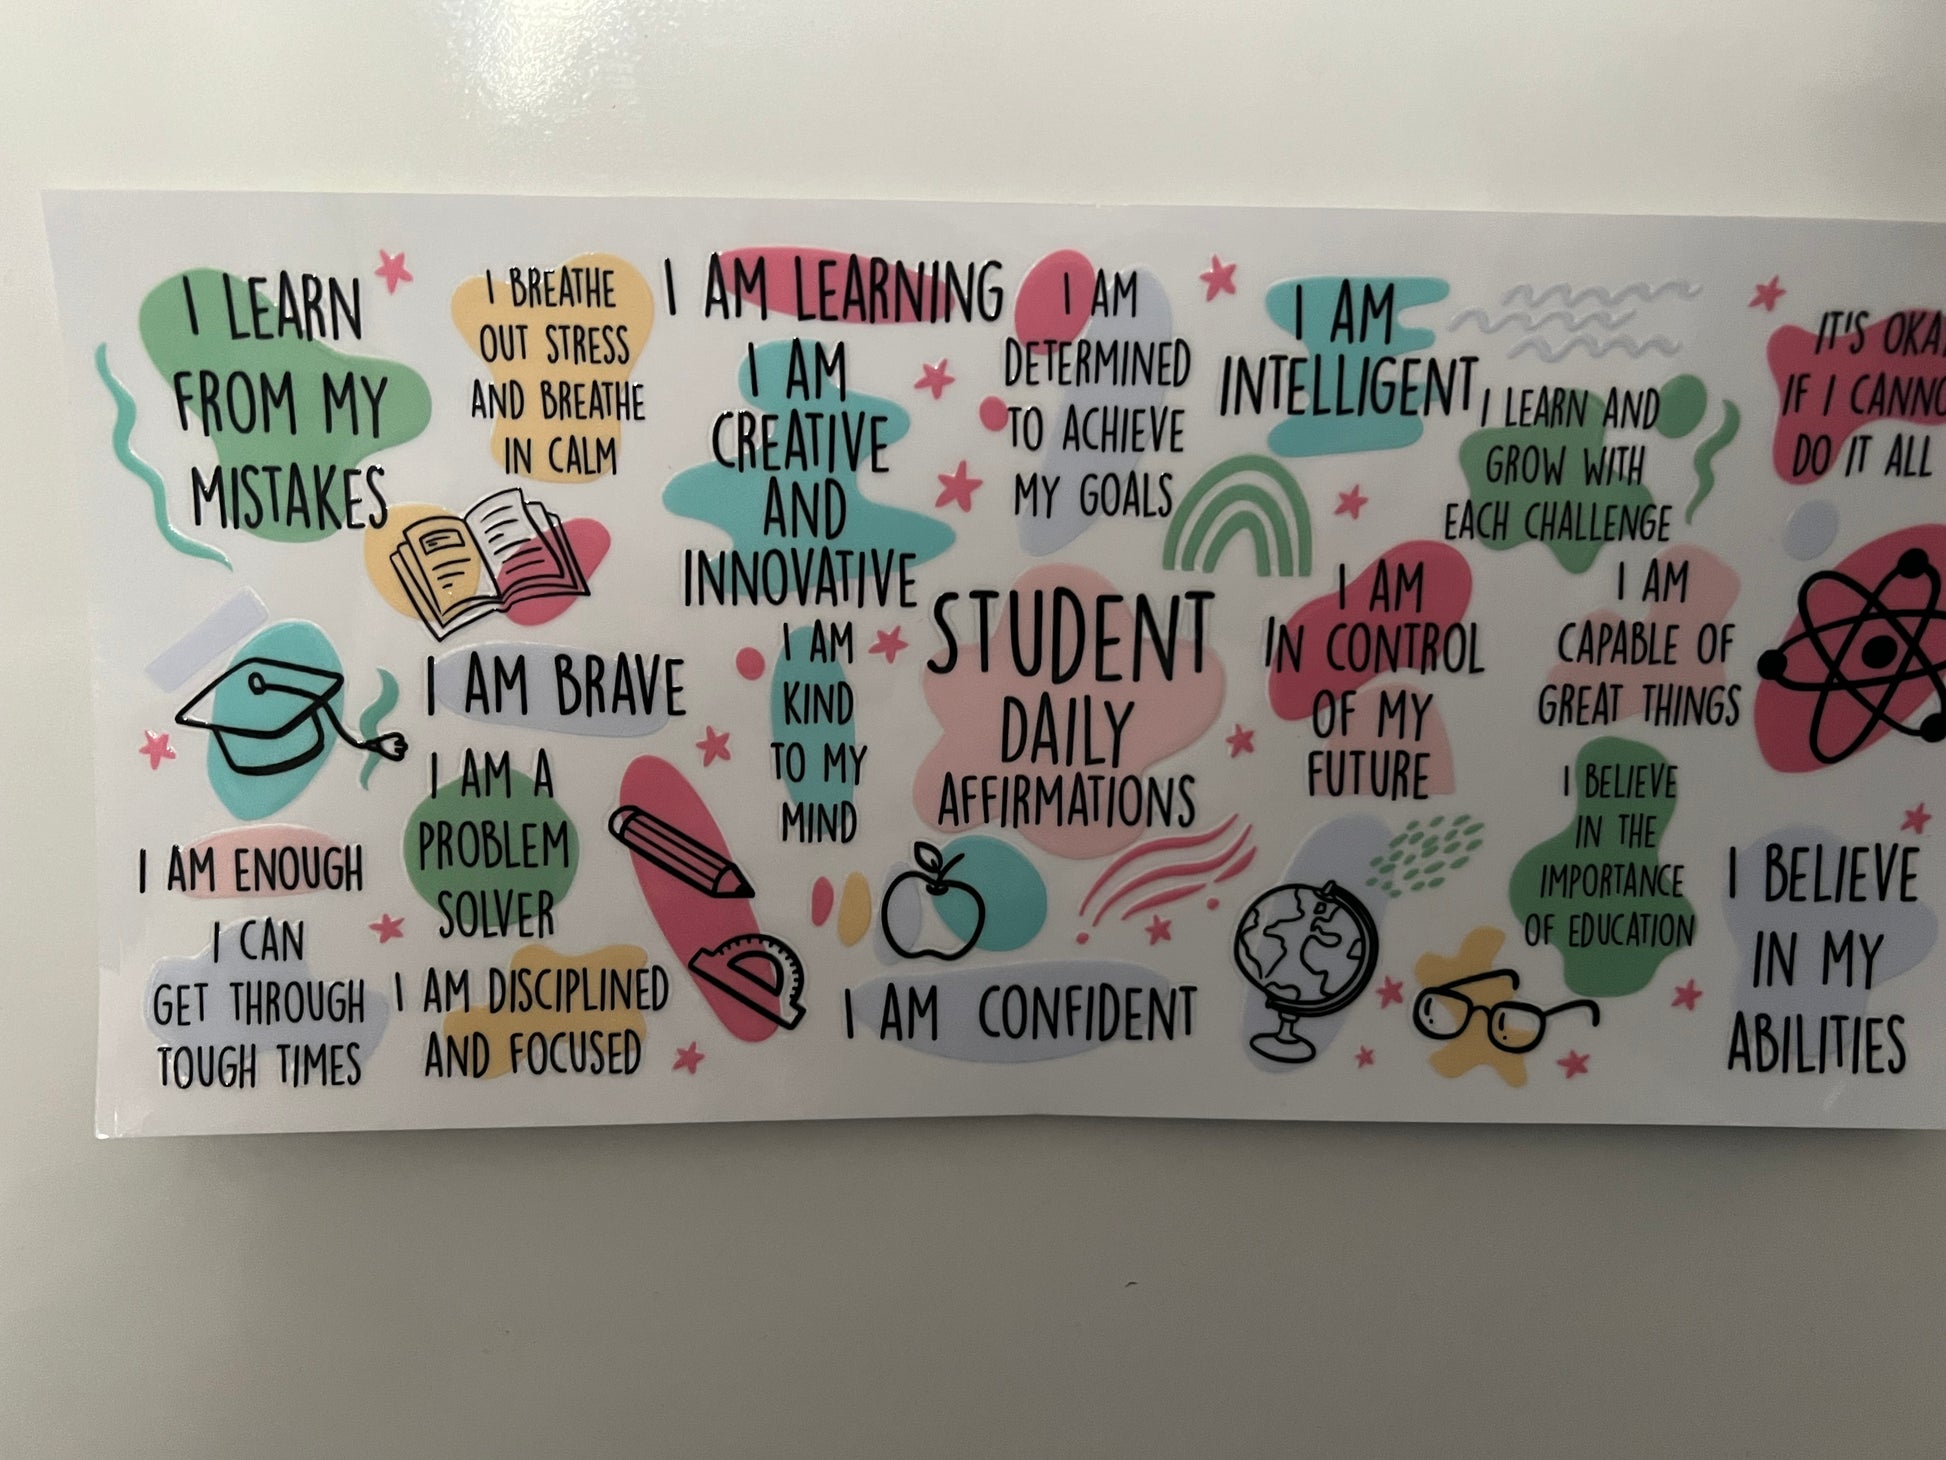 I LEARN
FROM MY
MISTAKES
I BREATHE
OUT STRESS
AND BREATHE
IN CALM
I AM LEARNING
I AM
CREATIVE
AND
INNOVATIVE
I AM
DETERMINED
TO ACHIEVE
MY GOALS
I AM
INTELLIGENT
I LEARN AND
GROW WITH
EACH CHALLENGE
IT'S
IF I
DO IT ALL
I AM BRAVE
I AM
KIND
TO MY
MIND
STUDENT
DAILY
AFFIRMATIONS
I AM
IN CONTROL
OF MY
FUTURE
I AM
CAPABLE OF
GREAT THINGS
I AM ENOUGH
I AM A
PROBLEM
SOLVER
I BELIEVE
IN THE
IMPORTANCE
OF EDUCATION
I BELIEVE
IN MY
ABILITIES
I CAN
GET THROUGH
TOUGH TIMES
I AM DISCIPLINED
AND FOCUSED
I AM CONFIDENT